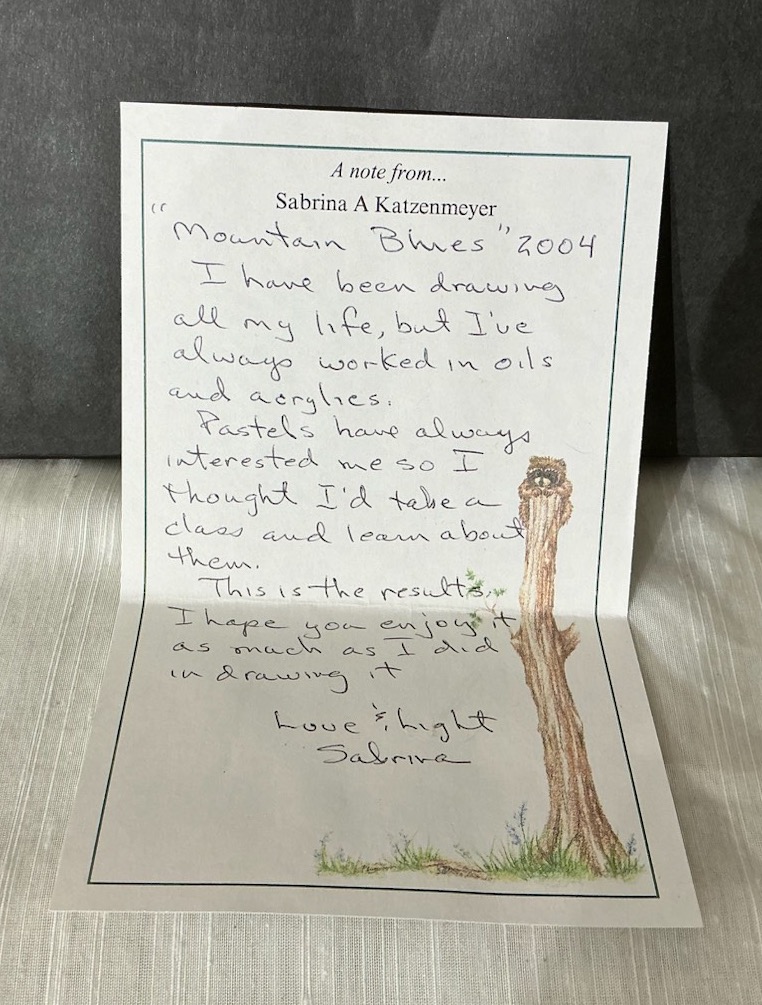 A note from...
Sabrina A Katzenmeyer
"Mountain Blues" 2004
I have been drawing
all my life, but I've
always worked in oils
and acrylics.
Pastels have always
interested me so I
thought I'd take a
class and learn about
them.
This is the results.
I hope you enjoy it
as much as I did
in drawing it
Love & Light
Sabrina